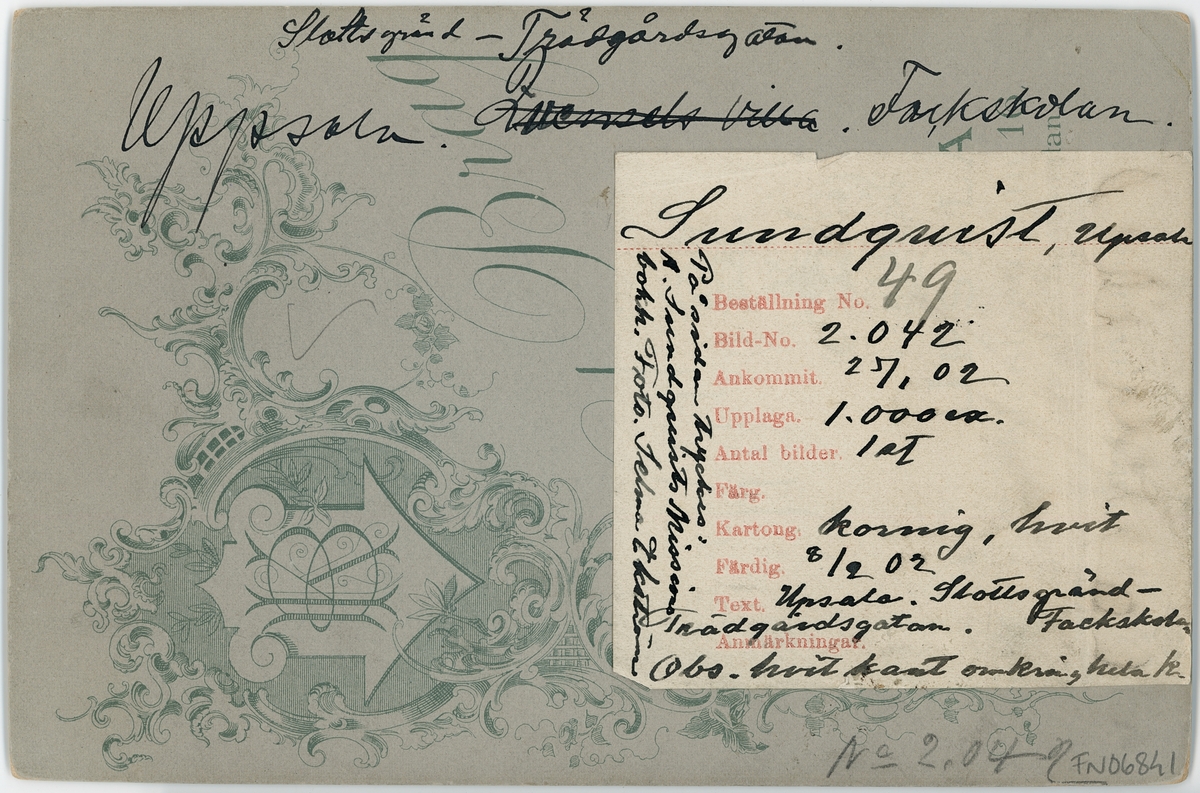 Slottsgränd - Trädgårdsgatan.
Uppsala. villa. Fackskolan.
Sundquist, Upsala
Beställning No. 49
Bild-No. 2.042
Ankommit. 25/1 02
Upplaga. 1.000 ex.
Antal bilder. 1 st
Färg.
Kartong. kornig, hvit
Färdig. 8/2 02
Text. Upsala. Slottsgränd-
Trädgårdsgatan. Fackskolan
Anmärkningar.
Obs. hvit kant omkring hela k.
På sidan tryckes:
K. Sundquists Missions
bokh. Foto. Selma Ekström
No 2.042
FN06841